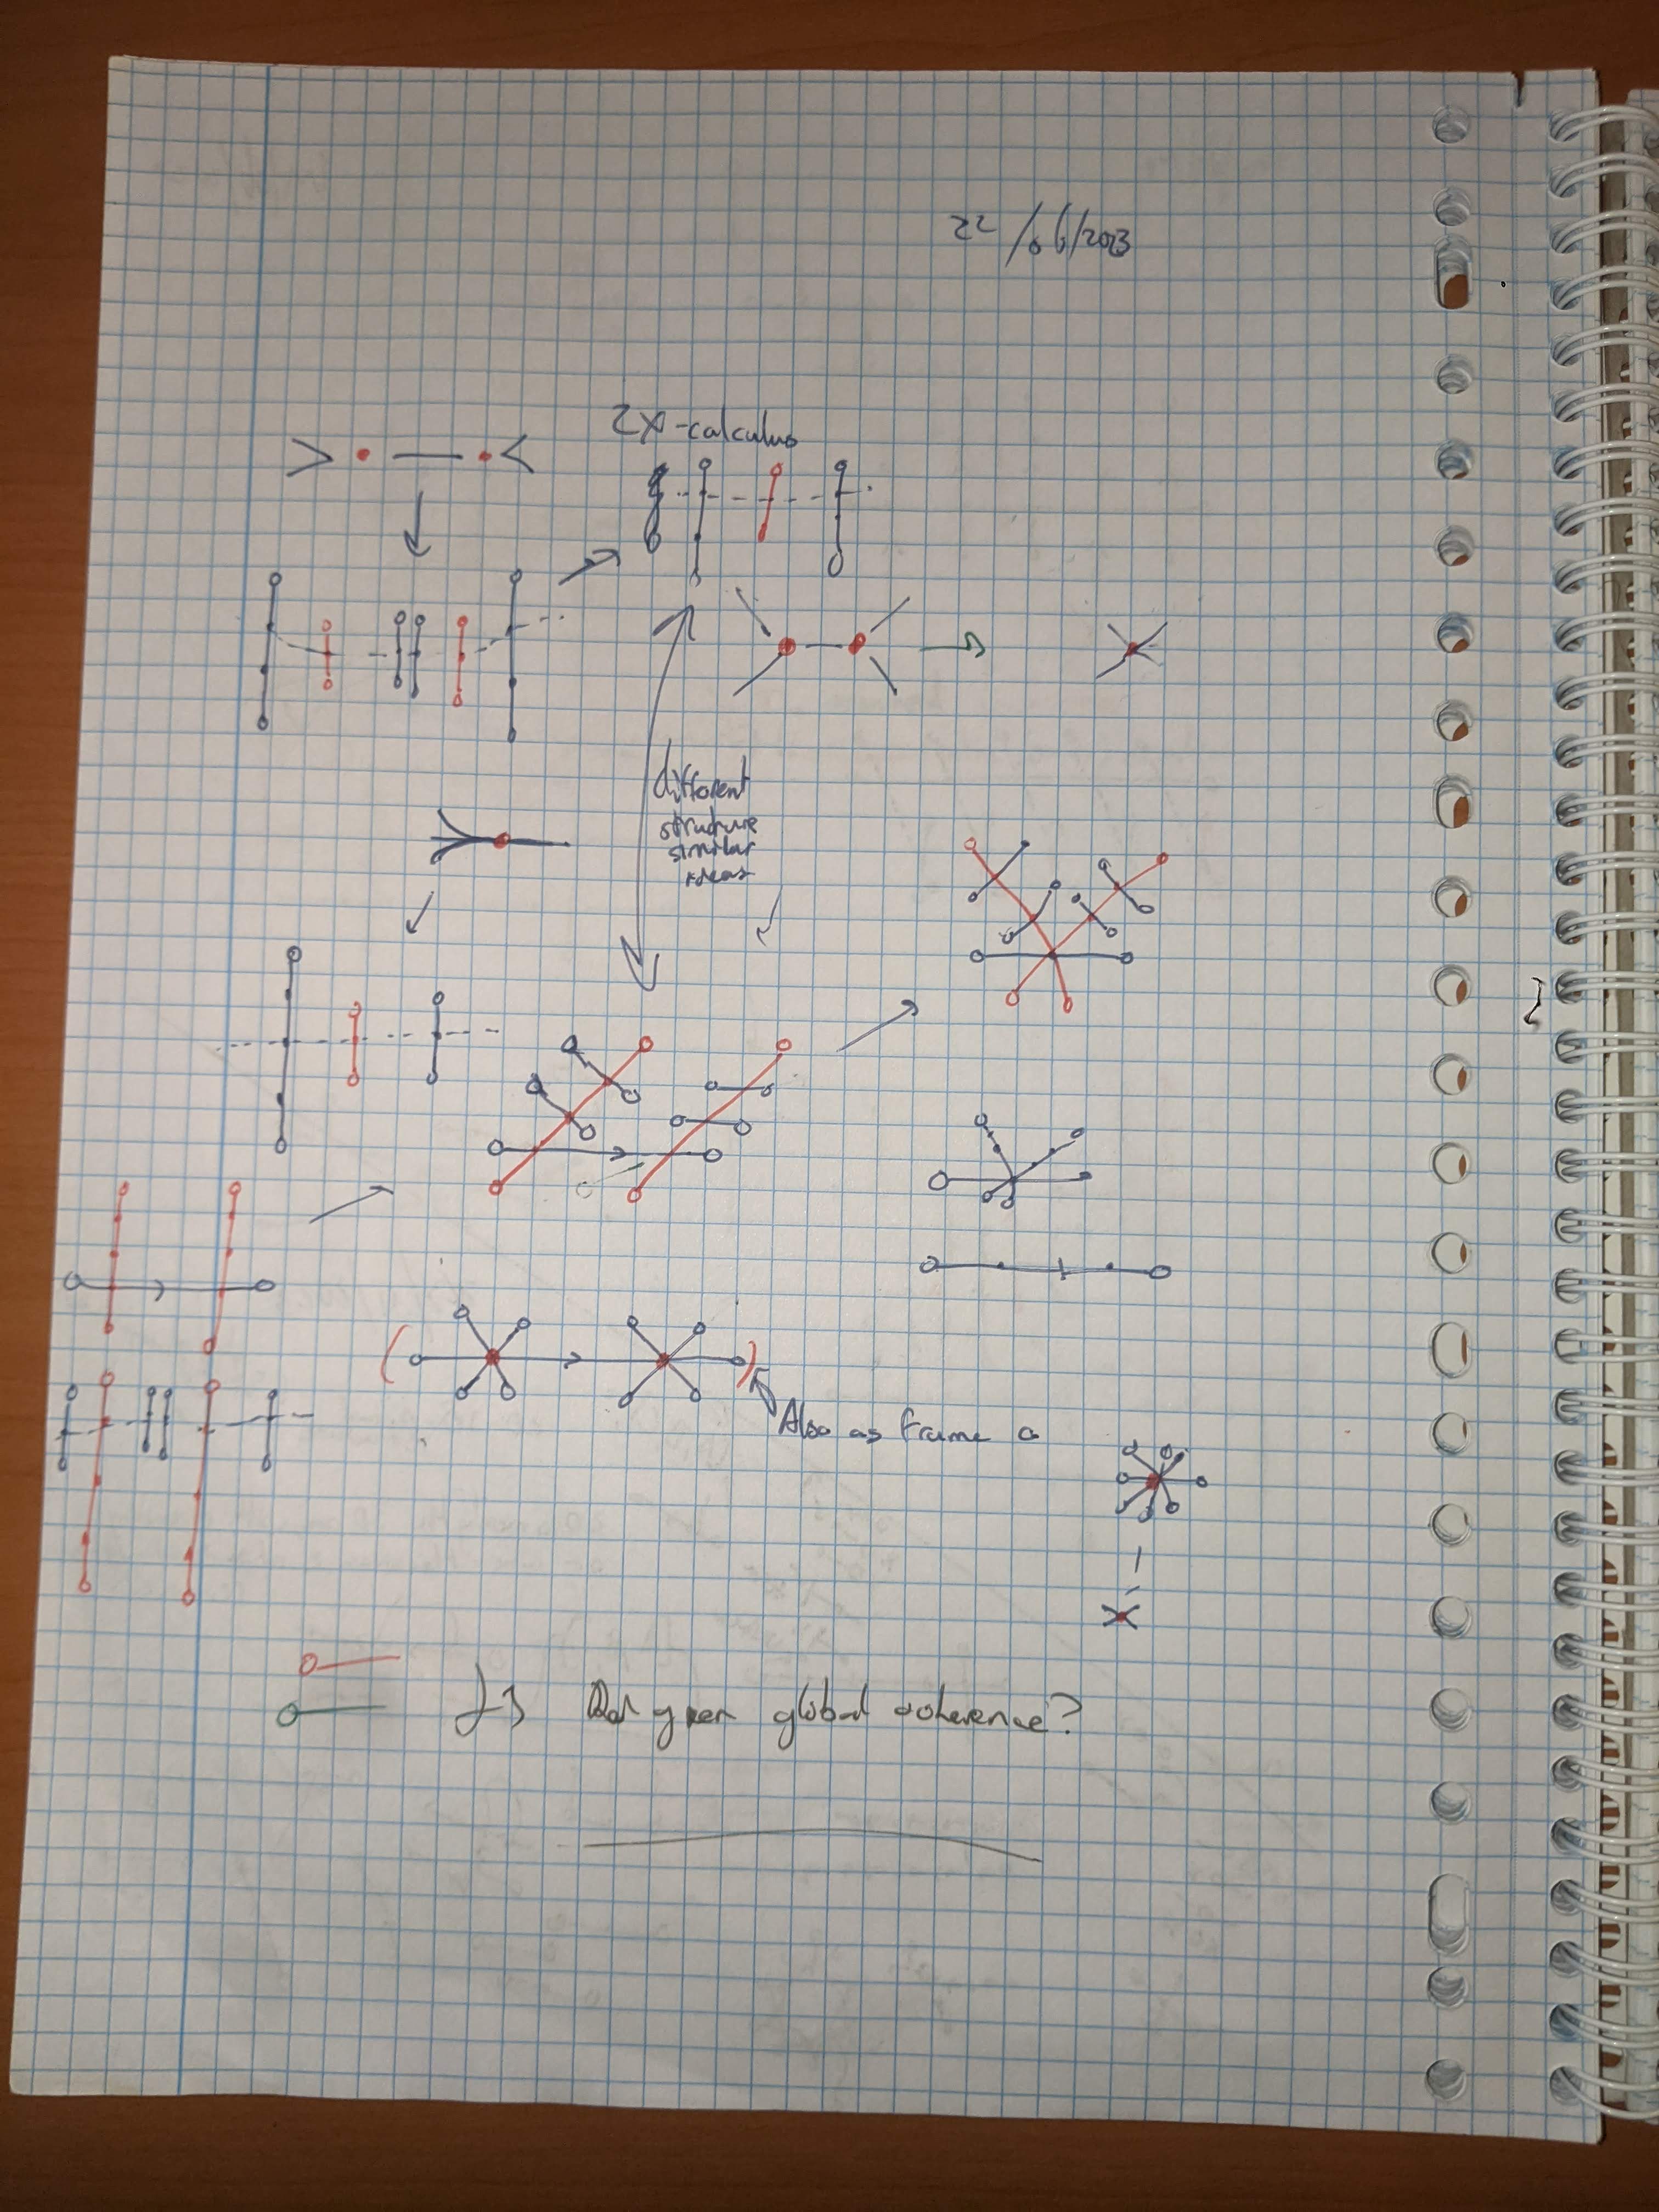 22/06/2023
ZX-calculus
different
structure
similar
ideas
Also as frame a
global coherence?